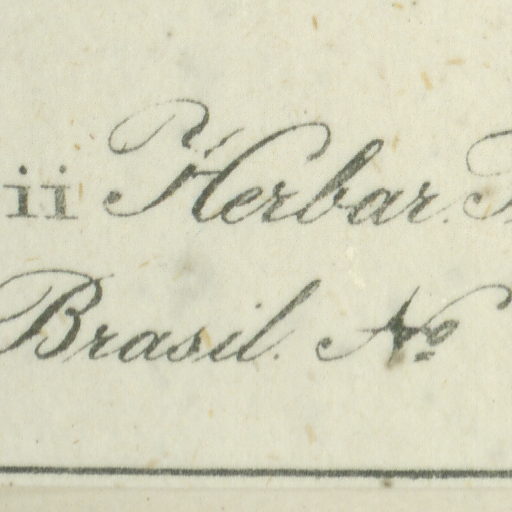 ii Herbar.
Brasil. No